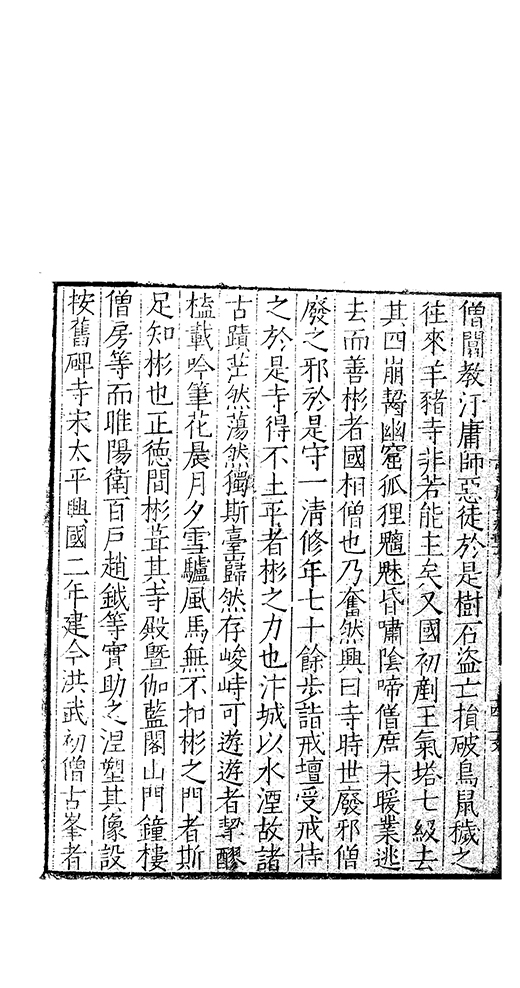 僧闒教汙庸師惡徒於是樹石盜亡揎破鳥鼠穢之
往來羊豬寺非若能主矣又國初剷王氣塔七級去
其四崩罅幽窟狐狸魑魅昏嘯陰啼僧席未暖業逃
去而善彬者國相僧也乃奮然興曰寺時世廢邪僧
廢之邪於是守一清修年七十餘步詣戒壇受戒持
之於是寺得不土平者彬之力也汴城以水湮故諸
古蹟茫然蕩然獨斯臺巋然存峻峙可遊遊者挈醪
榼載吟筆花晨月夕雪驢風馬無不扣彬之門者斯
足知彬也正德間彬葺其寺殿暨伽藍閣山門鐘樓
僧房等而睢陽衛百戶趙鉞等實助之涅塑其像設
按舊碑寺宋太平興國二年建今洪武初僧古峯者